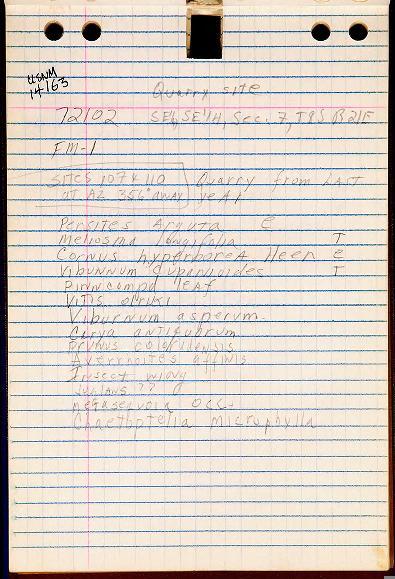 USNM
14163
Quarry site
72102
SE¼, SE¼, Sec. 7, T8S R21E
FM-1
Sites 107 & 110 Quarry from LAST
AT AZ 356° away year
Persites Arguta e
Meliosma longifolia T
Cornus hyperborea Heer e
Viburnum cupanioides T
Pinn compd leaf
Vitis olriki
Viburnum asperum
Carya antiquorum
Prunus coloradensis
Averrhoites affinis
Insect wing
Juglans ??
occ.
Chaetoptelia Microphylla